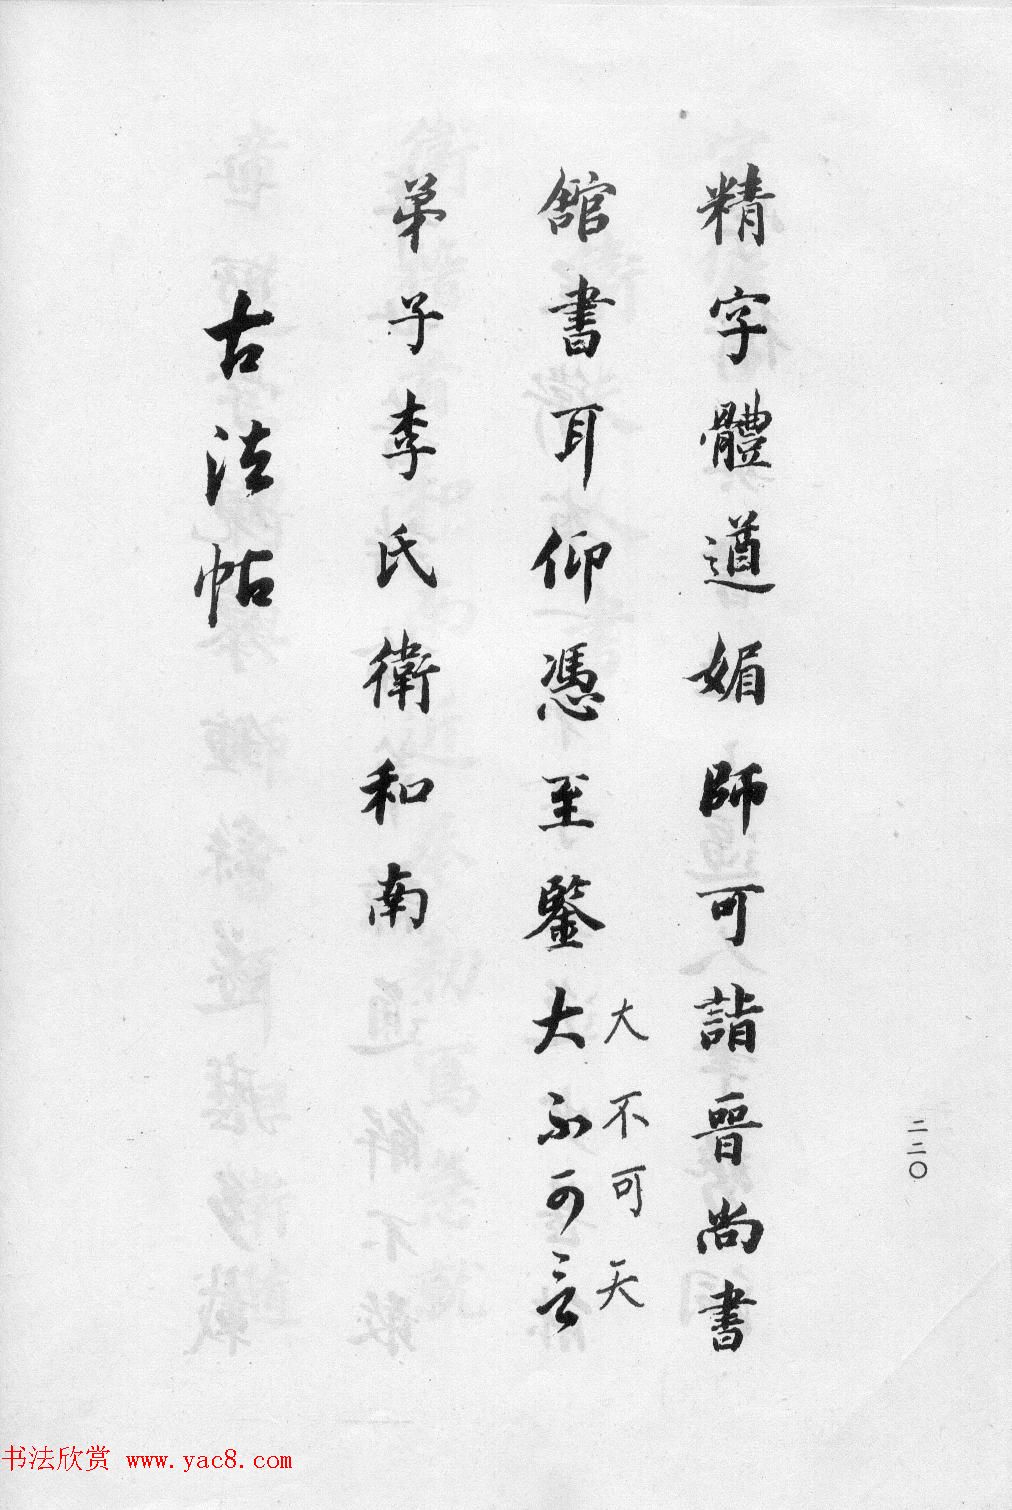 精字體遒媚師可詣晉尚書
館書耳仰憑至鑒大不可言
大不可天
弟子李氏衛和南
古法帖
二二〇
书法欣赏 www.yac8.com